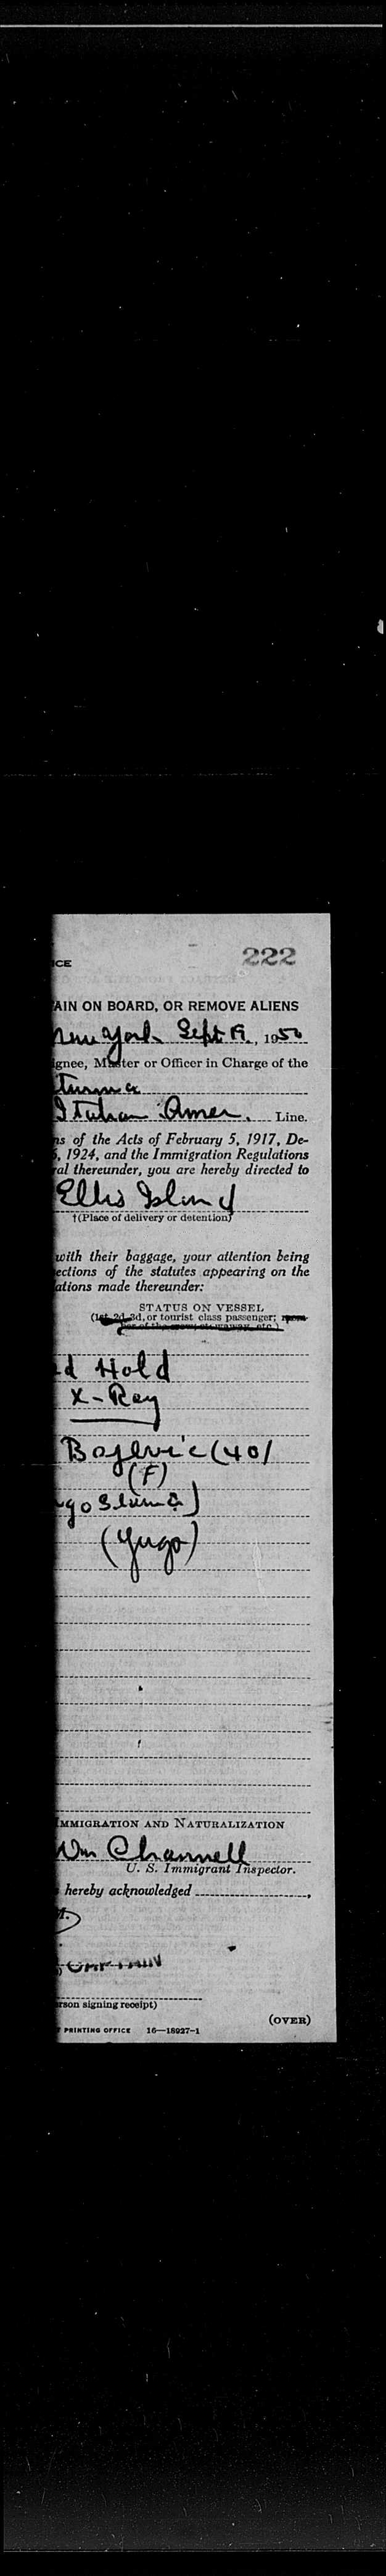 222
ICE
AIN ON BOARD, OR REMOVE ALIENS
New York Sept 19, 1950
gnee, Master or Officer in Charge of the
Italian Amer. Line.
ns of the Acts of February 5, 1917, De-
, 1924, and the Immigration Regulations
ral thereunder, you are hereby directed to
Ellis Island
†(Place of delivery or detention)
with their baggage, your attention being
ections of the statutes appearing on the
ations made thereunder:
STATUS ON VESSEL
(1st, 2d, 3d, or tourist class passenger;
d Hold
X-Ray
(40)
(F)
(Yugo)
IMMIGRATION AND NATURALIZATION
Wm Channell
U. S. Immigrant Inspector.
hereby acknowledged
CAPTAIN
rson signing receipt)
(OVER)
PRINTING OFFICE 16—18927-1